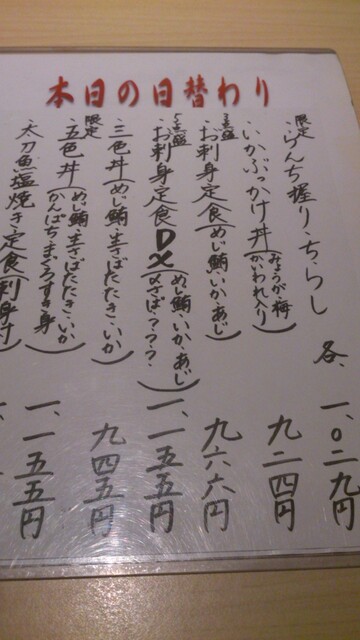 本日の日替わり
限定 らんち握り・ちらし 各、一、〇二九円
・いかぶっかけ丼(みょうが・梅 かいわれ入り) 九二四円
・お刺身定食(めじ鮪・いか・あじ) 九六六円
・お刺身定食DX(めじ鮪・いか・あじ 〆さば???) 一、一五五円
・三色丼(めじ鮪・生さばたたき・いか) 九四五円
限定 ・五色丼(めじ鮪・生さばたたき・いか かんぱち・まぐろすき身) 一、一五五円
・太刀魚塩焼き定食(刺身付)